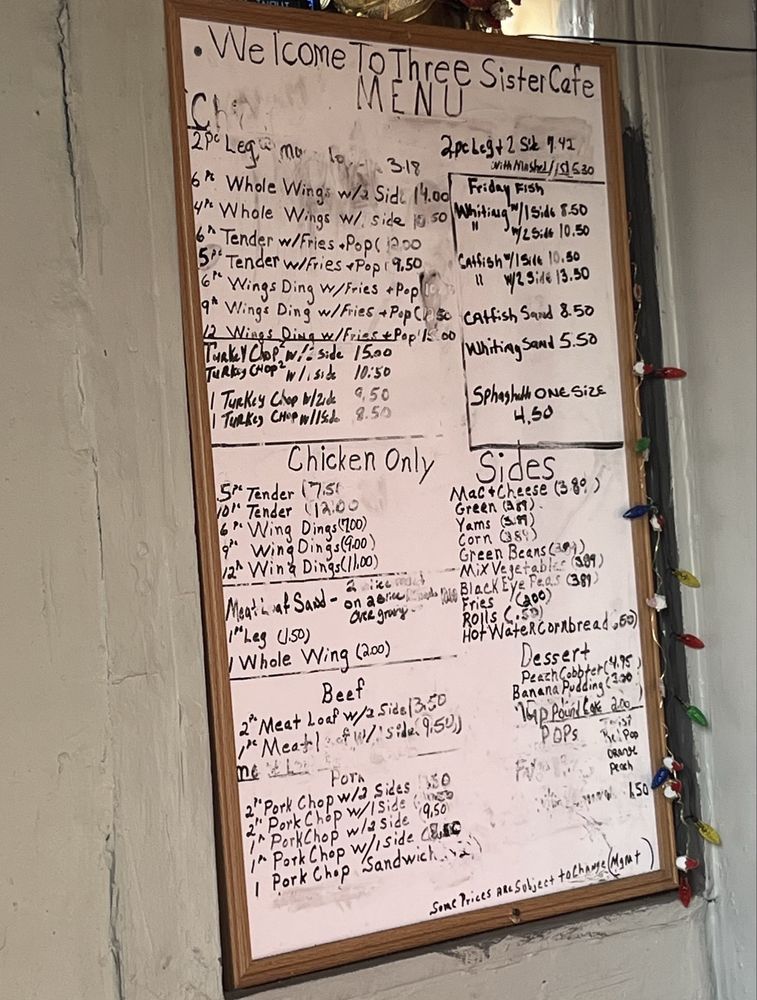 • Welcome To Three Sister Cafe
MENU
2pc Leg
3.18
6pc Whole Wings w/2 Side 14.00
4pc Whole Wings w/1 side 10.50
6pc Tender w/Fries + Pop (12.00
5pc Tender w/Fries + Pop (9.50
6pc Wings Ding w/Fries + Pop
9pc Wings Ding w/Fries + Pop
12 Wings Ding w/Fries + Pop
Turkey Chop² w/2 side 15.00
Turkey CHOP² w/1 side 10.50
1 Turkey Chop w/2side 9.50
1 Turkey Chop w/1Side 8.50
2pc Leg + 2 Side 7.42
Friday Fish
Whiting w/1Side 8.50
" w/2Side 10.50
Catfish w/1Side 10.50
" w/2 Side 13.50
Catfish Sand 8.50
Whiting Sand 5.50
Sphaghetti ONE SIZE
4.50
Chicken Only
5pc Tender (7.51
10pc Tender (12.00
6pc Wing Dings (7.00)
9pc Wing Dings (9.00)
12pc Wing Dings (11.00)
Meat Loaf Sand -
on 2 slice
over gravy
1pc Leg (1.50)
1 Whole Wing (2.00)
Beef
2pc Meat Loaf w/2 Side 13.50
1pc Meat Loaf w/1 side (9.50)
Pork
2pc Pork Chop w/2 Sides
2pc Pork Chop w/1 Side
1pc Pork Chop w/2 Side 9.50
1pc Pork Chop w/1 side
1 Pork Chop Sandwich
Sides
Mac + Cheese (3.89)
Green (3.89)
Yams (3.89)
Corn (3.89)
Green Beans (3.89)
Mix Vegetables (3.89)
Black Eye Peas (3.89)
Fries (2.00)
Rolls (.50)
Hot Water Cornbread .50)
Dessert
Peach Cobbter (4.95)
Banana Pudding
7up Pound Cake 2.00
POPs
Twist
Red Pop
Orange
Peach
1.50
Some Prices Are Subject to Change (Mgmt)